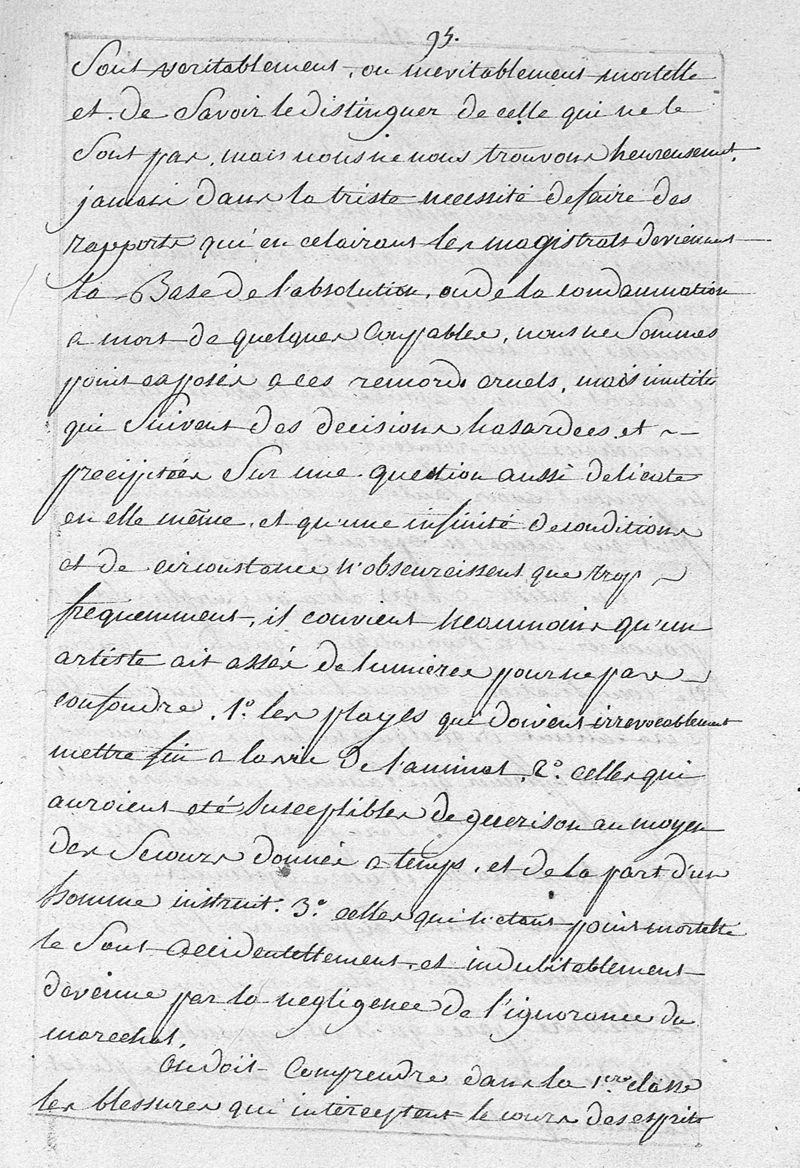 95.
Sont veritablement, ou inevitablement mortelle
et de Savoir le distinguer de celle qui ne le
Sont pas, mais nous ne nous trouvons heureusement
jamais dans la triste necessité de faire des
rapports qui en eclairant les magistrats deviennent
la Base de l'absolution, ou de la condamnation
a mort de quelques Coupables, nous ne Sommes
point exposés a ces remords cruels, mais inutiles
qui Suivent des decisions hasardées et
precipitées Sur une question aussi delicate
en elle même, et qu'une infinité de conditions
et de circonstance n'obscurcissent que trop
frequemment, il convient neanmoins qu'un
artiste ait assés de lumieres pour ne pas
confondre, 1.° les playes qui doivent irrevocablement
mettre fin a la vie de l'animal, 2.° celles qui
auroient eté Susceptibles de guerison au moyen
des Secours donnés a temps, et de la part d'un
homme instruit. 3.° celles qui n'etant point mortelle
le Sont accidentellement, et indubitablement
devenue par la negligence de l'ignorance du
marechal.
On doit Comprendre dans la 1ere classe
les blessures qui interceptent le cours des esprits